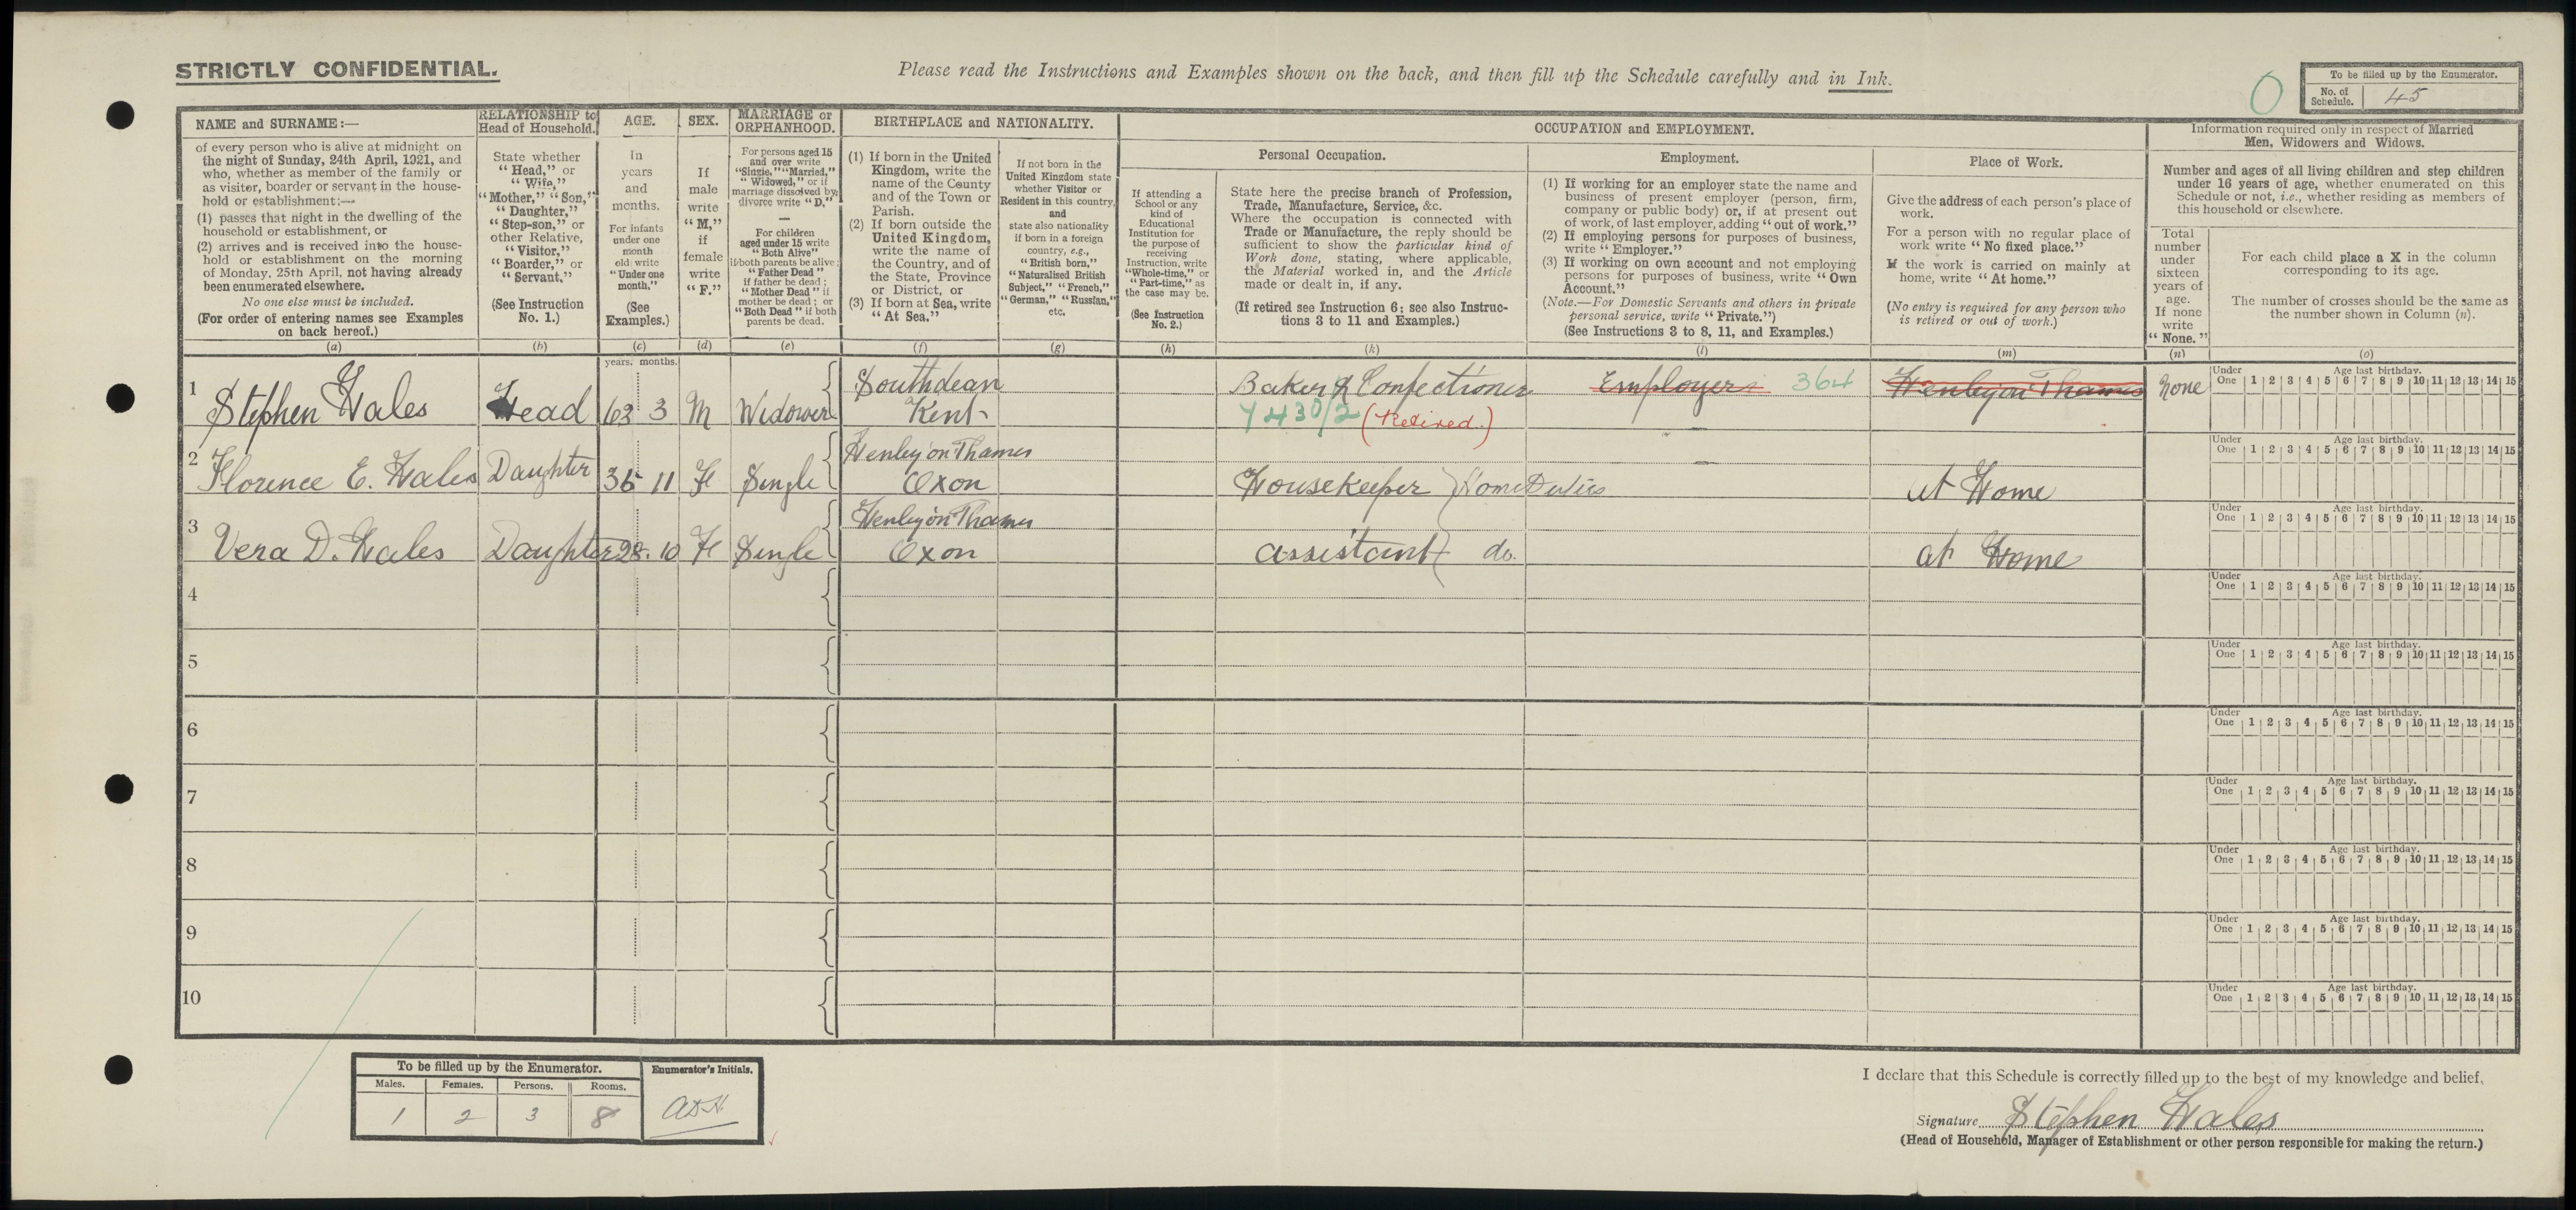 STRICTLY CONFIDENTIAL.
Please read the Instructions and Examples shown on the back, and then fill up the Schedule carefully and in Ink.
0
To be filled up by the Enumerator.
No. of Schedule. 45
NAME and SURNAME:—
of every person who is alive at midnight on
the night of Sunday, 24th April, 1921, and
who, whether as member of the family or
as visitor, boarder or servant in the house-
hold or establishment:—
(1) passes that night in the dwelling of the
household or establishment, or
(2) arrives and is received into the house-
hold or establishment on the morning
of Monday, 25th April, not having already
been enumerated elsewhere.
No one else must be included.
(For order of entering names see Examples
on back hereof.)
(a)
RELATIONSHIP to
Head of Household.
State whether
"Head," or
"Wife,"
"Mother," "Son,"
"Daughter,"
"Step-son," or
other Relative,
"Visitor,"
"Boarder," or
"Servant."
(See Instruction
No. 1.)
(b)
AGE.
In
years
and
months.
For infants
under one
month
old write
"Under one
month."
(See
Examples.)
(c)
SEX.
If
male
write
"M,"
if
female
write
"F."
(d)
MARRIAGE or
ORPHANHOOD.
For persons aged 15
and over write
"Single," "Married,"
"Widowed," or if
marriage dissolved by
divorce write "D."
—
For children
aged under 15 write
"Both Alive"
if both parents be alive;
"Father Dead"
if father be dead;
"Mother Dead" if
mother be dead; or
"Both Dead" if both
parents be dead.
(e)
BIRTHPLACE and NATIONALITY.
(1) If born in the United
Kingdom, write the
name of the County
and of the Town or
Parish.
(2) If born outside the
United Kingdom,
write the name of
the Country, and of
the State, Province
or District, or
(3) If born at Sea, write
"At Sea."
(f)
If not born in the
United Kingdom state
whether Visitor or
Resident in this country,
and
state also nationality
if born in a foreign
country, e.g.,
"British born,"
"Naturalised British
Subject," "French,"
"German," "Russian,"
etc.
(g)
OCCUPATION and EMPLOYMENT.
If attending a
School or any
kind of
Educational
Institution for
the purpose of
receiving
Instruction, write
"Whole-time," or
"Part-time," as
the case may be.
(See Instruction
No. 2.)
(h)
Personal Occupation.
State here the precise branch of Profession,
Trade, Manufacture, Service, &c.
Where the occupation is connected with
Trade or Manufacture, the reply should be
sufficient to show the particular kind of
Work done, stating, where applicable,
the Material worked in, and the Article
made or dealt in, if any.
(If retired see Instruction 6; see also Instruc-
tions 3 to 11 and Examples.)
(k)
Employment.
(1) If working for an employer state the name and
business of present employer (person, firm,
company or public body) or, if at present out
of work, of last employer, adding "out of work."
(2) If employing persons for purposes of business,
write "Employer."
(3) If working on own account and not employing
persons for purposes of business, write "Own
Account."
(Note.—For Domestic Servants and others in private
personal service, write "Private.")
(See Instructions 3 to 8, 11, and Examples.)
(l)
Place of Work.
Give the address of each person's place of
work.
For a person with no regular place of
work write "No fixed place."
If the work is carried on mainly at
home, write "At home."
(No entry is required for any person who
is retired or out of work.)
(m)
Information required only in respect of Married
Men, Widowers and Widows.
Number and ages of all living children and step children
under 16 years of age, whether enumerated on this
Schedule or not, i.e., whether residing as members of
this household or elsewhere.
Total
number
under
sixteen
years of
age.
If none
write
"None."
(n)
For each child place a X in the column
corresponding to its age.
The number of crosses should be the same as
the number shown in Column (n).
(o)
years. months.
1 Stephen Hales Head 63 3 M Widower Southdean Kent Baker & Confectioner Employer 364 Henley on Thames None
7430/2 (Retired.)
Under One 1 2 3 4 5 6 7 8 9 10 11 12 13 14 15 Age last birthday.
2 Florence E. Hales Daughter 35 11 F Single Henley on Thames Oxon Housekeeper } Home Duties at Home
Under One 1 2 3 4 5 6 7 8 9 10 11 12 13 14 15 Age last birthday.
3 Vera D. Hales Daughter 28 10 F Single Henley on Thames Oxon assistant } do. at Home
Under One 1 2 3 4 5 6 7 8 9 10 11 12 13 14 15 Age last birthday.
4 Under One 1 2 3 4 5 6 7 8 9 10 11 12 13 14 15 Age last birthday.
5 Under One 1 2 3 4 5 6 7 8 9 10 11 12 13 14 15 Age last birthday.
6 Under One 1 2 3 4 5 6 7 8 9 10 11 12 13 14 15 Age last birthday.
7 Under One 1 2 3 4 5 6 7 8 9 10 11 12 13 14 15 Age last birthday.
8 Under One 1 2 3 4 5 6 7 8 9 10 11 12 13 14 15 Age last birthday.
9 Under One 1 2 3 4 5 6 7 8 9 10 11 12 13 14 15 Age last birthday.
10 Under One 1 2 3 4 5 6 7 8 9 10 11 12 13 14 15 Age last birthday.
To be filled up by the Enumerator.
Males. Females. Persons. Rooms.
1 2 3 8
Enumerator's Initials.
ADH
I declare that this Schedule is correctly filled up to the best of my knowledge and belief.
Signature Stephen Hales
(Head of Household, Manager of Establishment or other person responsible for making the return.)